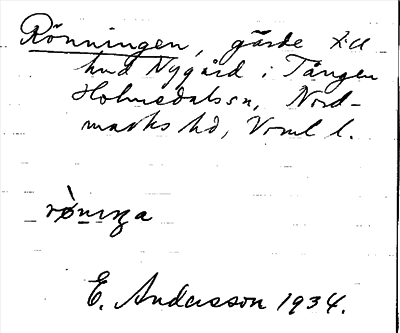 Rönningen, gärde till
hmd Nygård i Tången
Holmedals sn, Nord-
marks hd, Vrml l.
E. Andersson 1934.